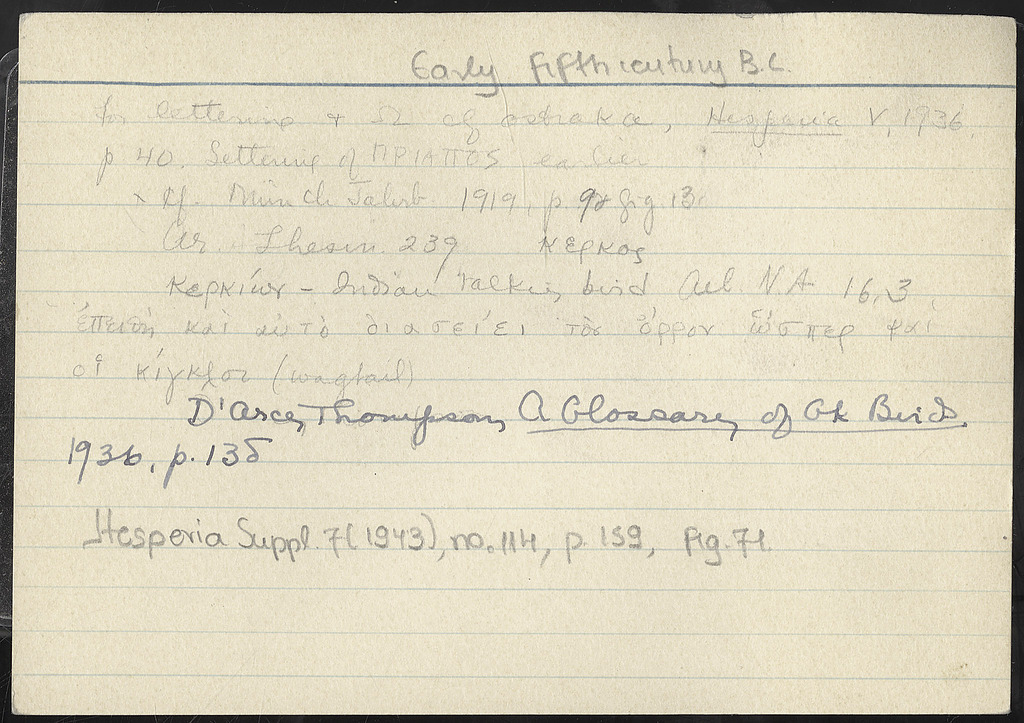 Early Fifth century B.C.
for lettering + Ω cf ostraka, Hesperia V, 1936,
p 40. Lettering of ΠΡΙΑΠΟΣ earlier
x cf. Münch Jahrb. 1919, p. 92 fig 13.
Ar. Thesm. 239 κερκος
κερκίων - Indian talking bird Ael. N.A. 16,3
ἐπειδὴ καὶ αὐτὸ διασείει τὸν ὄρρον ὥσπερ
οἱ κίγκλοι (wagtail)
D'Arcy Thompson, A Glossary of Gk Birds
1936, p. 135
Hesperia Suppl. 7 (1943), no. 114, p. 159, fig. 71.